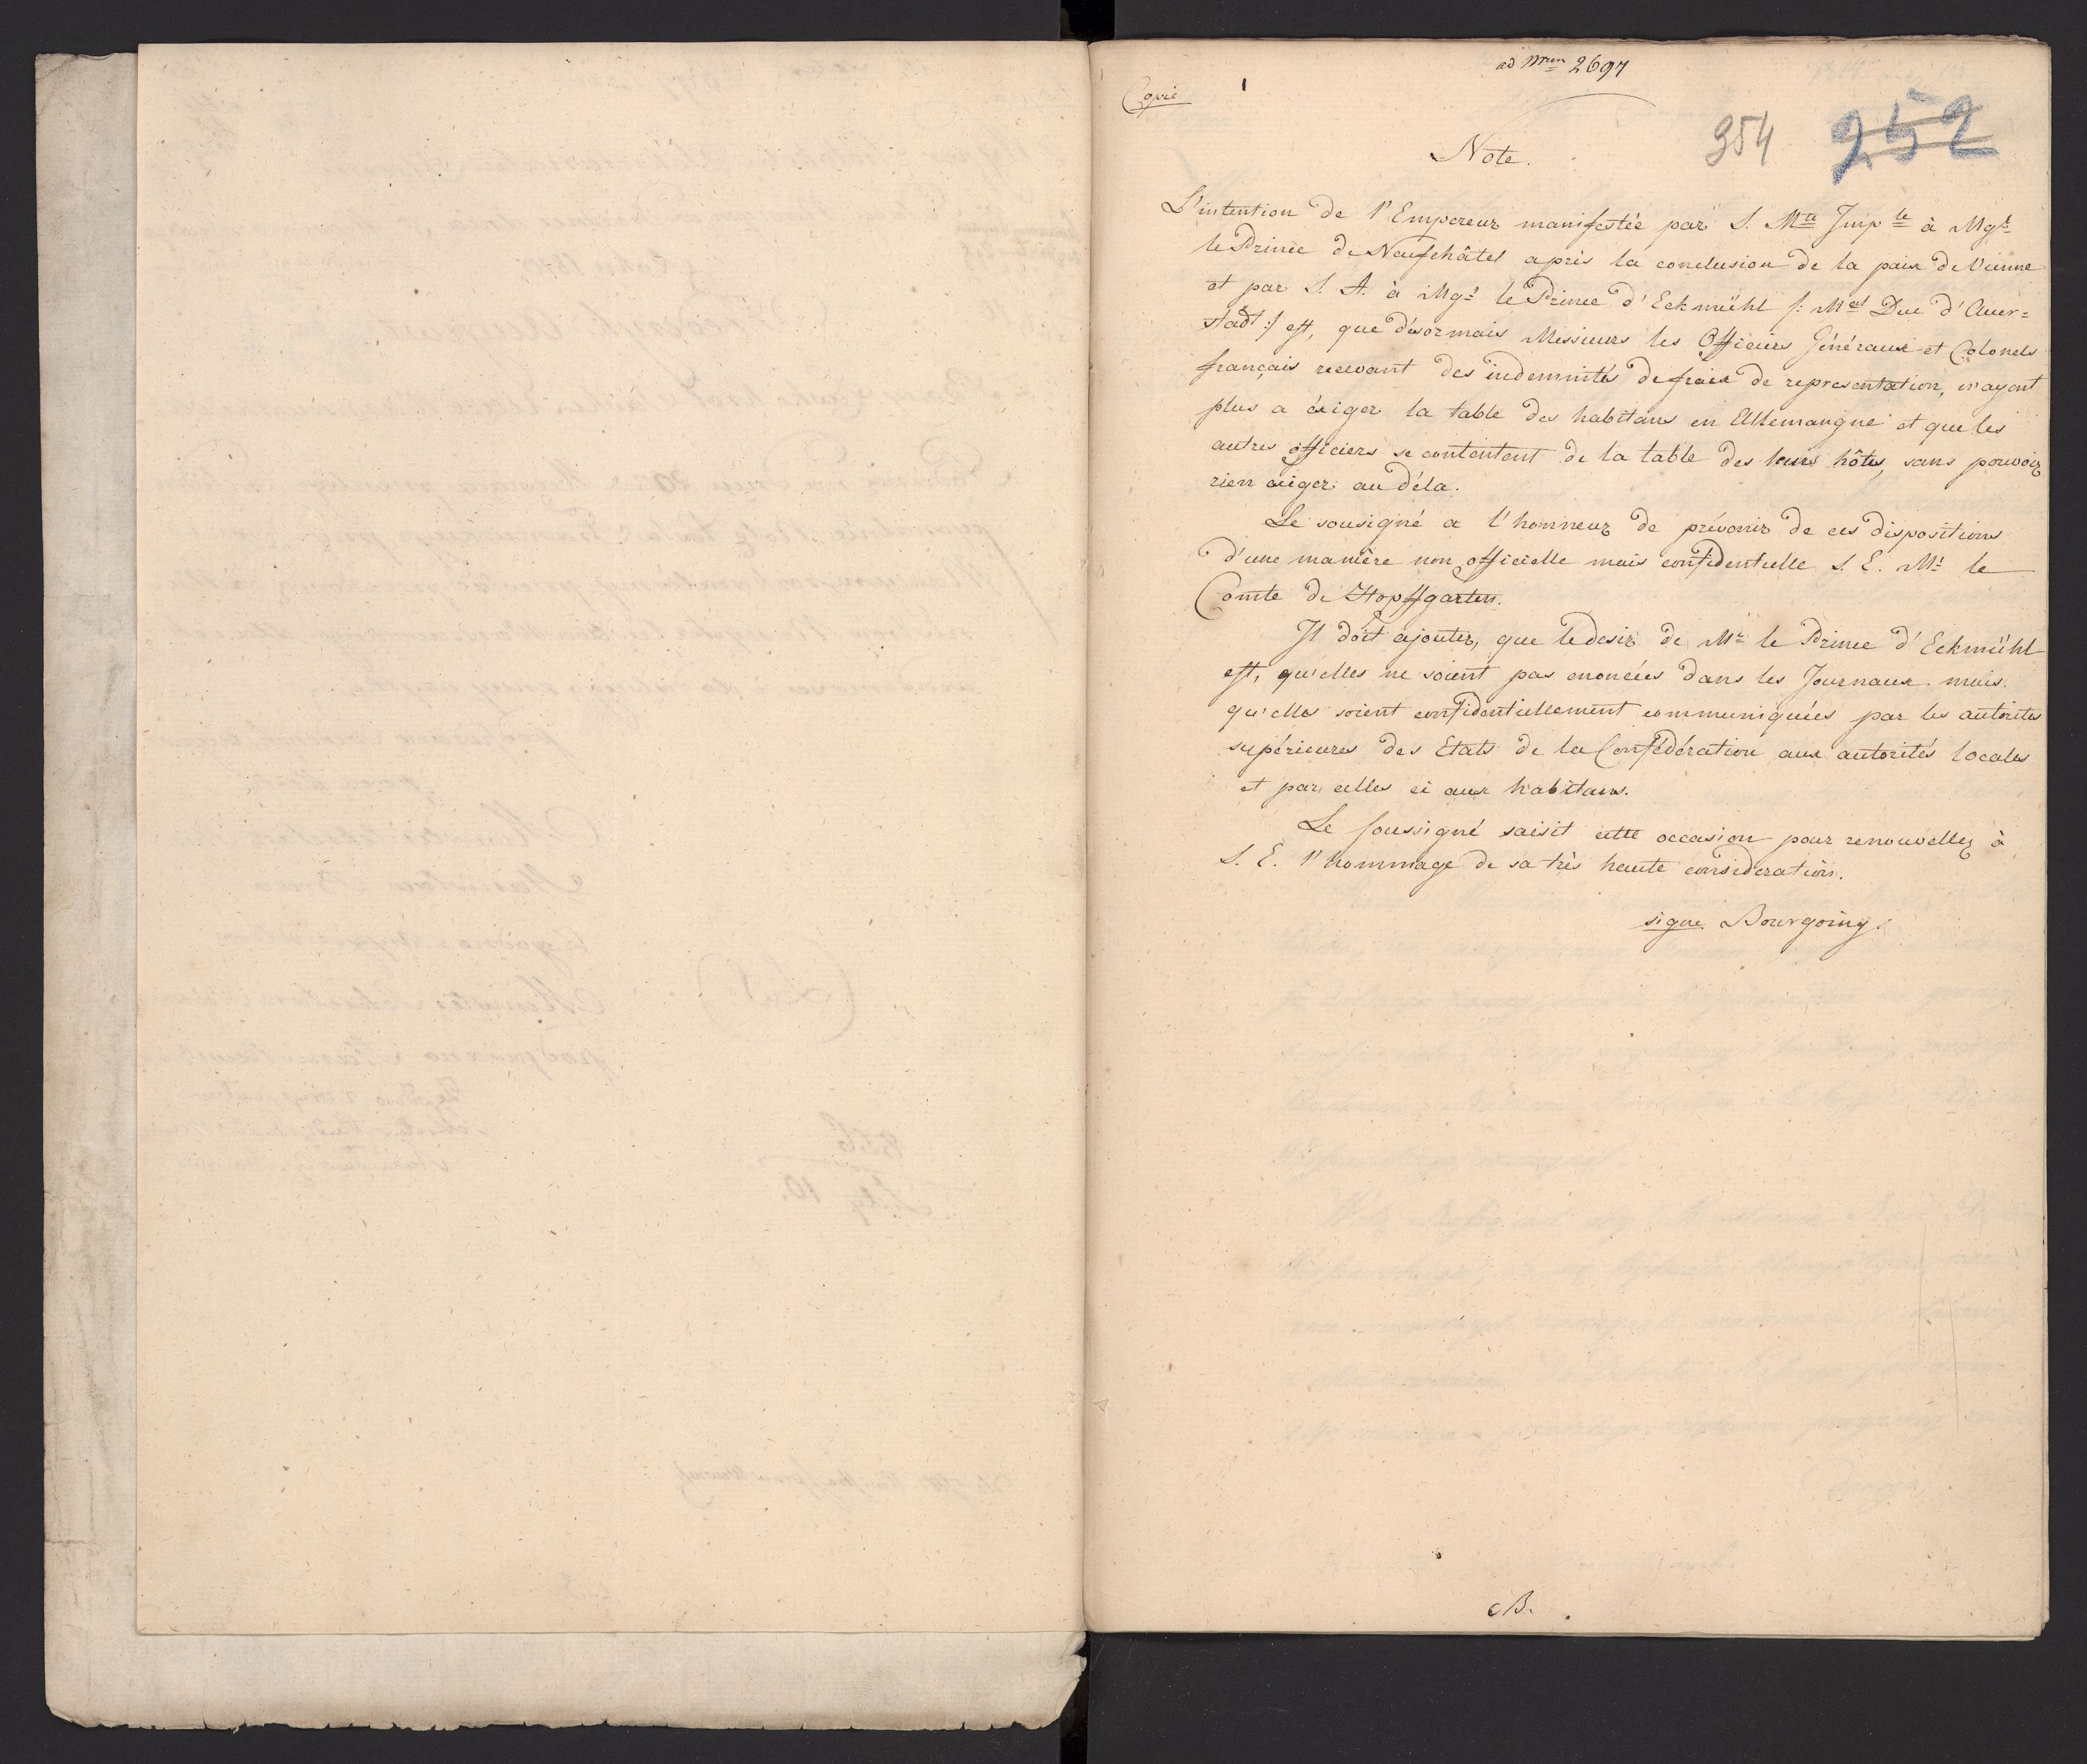 ad Nrum 2697
Copie
1
354 252
Note.
L'intention de l'Empereur manifestée par S. Mté Imple à Mgr
le Prince de Neufchâtel après la conclusion de la paix de Vienne
et par S. A. à Mgr le Prince d'Eckmühl /: Mal Duc d'Auer=
stadt :/ est, que désormais Messieurs les Officiers Généraux et Colonels
français recevant des indemnités de fraix de representation, n'ayent
plus a éxiger la table des habitans en Allemangne et que les
autres officiers se contentent de la table des leurs hôtes, sans pouvoir
rien exiger au déla.
Le sousigné a l'honneur de prévenir de ces dispositions
d'une manière non officielle mais confidentielle S. E. Mr le
Comte de Hopffgarten.
Il doit ajouter, que le desir de Mr le Prince d'Eckmühl
est, qu'elles ne soient pas enoncées dans les Journaux mais
qu'elles soient confidentiellement communiquées par les autorités
supérieures des Etats de la Confédération aux autorités locales
et par celles ci aux habitans.
Le soussigné saisit cette occasion pour renouveller à
S. E. l'hommage de sa très haute consideration.
signé Bourgoing.
B.